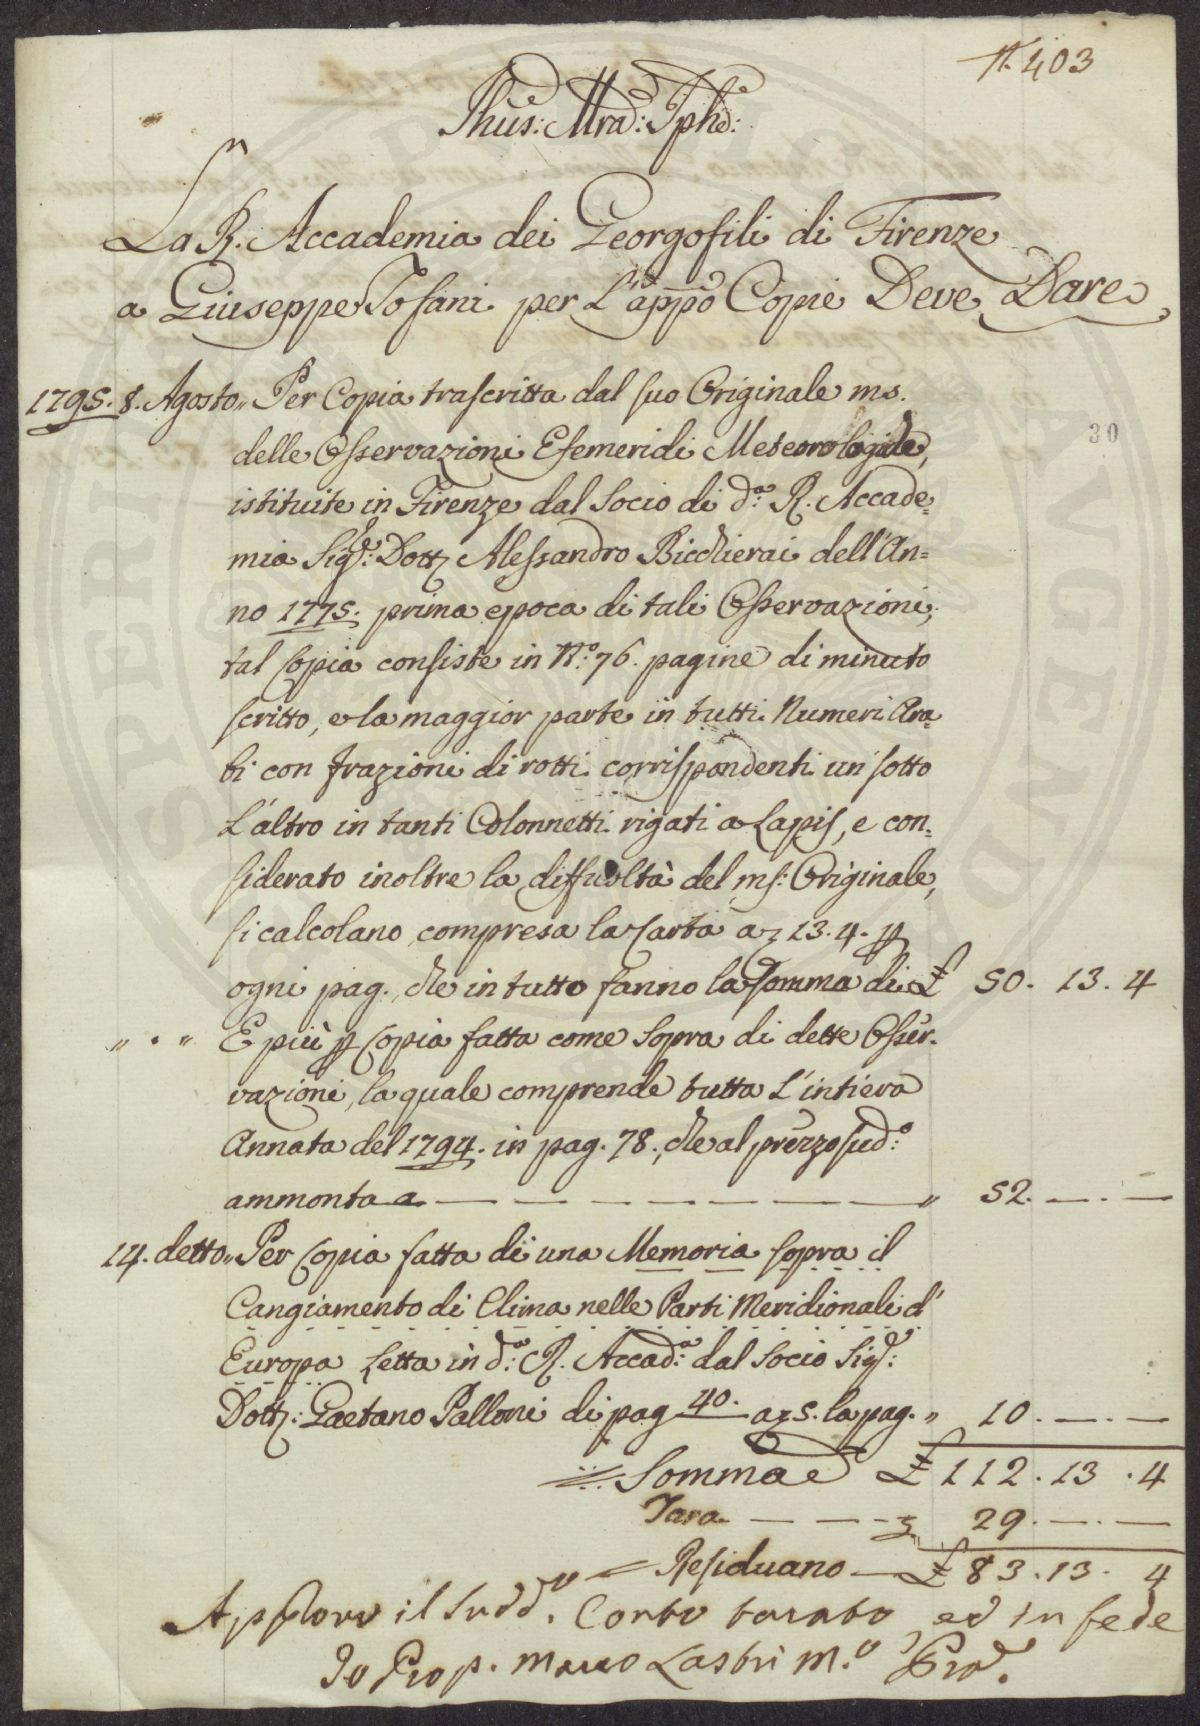 N. 403
Jhus: Mra: Jphe:
La R. Accademia dei Georgofili di Firenze
a Giuseppe Tofani per l'appo Copie Deve Dare
1795. 8. Agosto,, Per Copia trascritta dal suo Originale ms.
30
delle Osservazioni Efemeridi Meteorologiche,
istituite in Firenze dal Socio di da: R. Accade=
mia Sigr: Dott Alessandro Bicchierai dell'An=
no 1775. prima epoca di tali Osservazioni;
tal Copia consiste in No: 76. pagine di minuto
scritto, e la maggior parte in tutti Numeri Ara=
bi con frazioni di rotti corrispondenti un sotto
l'altro in tanti Colonnetti rigati a Lapis, e con=
siderato inoltre la difficoltà del ms: Originale,
si calcolano compresa la Carta a 13.4. p
ogni pag., che in tutto fanno la Somma di £ 50. 13. 4
,, . ,, E più p Copia fatta come Sopra di dette Osser=
vazioni, la quale comprende tutta l'intiera
Annata del 1794. in pag. 78., che al prezzo sudo:
ammonta a — — — — — — — — ,, 52. — . —
14. detto,, Per Copia fatta di una Memoria sopra il
Cangiamento di Clima nelle Parti Meridionali d'
Europa Letta in da: R. Accada: dal Socio Sigr:
Dott: Gaetano Palloni di pag 40. a 5. la pag. ,, 10. — . —
Somma £ 112. 13. 4
Tara — — — 29. — . —
Residuano — £ 83. 13. 4
Approvo il sudd.o Conto tarato ed in fede
Io Prop. Marco Lastri M.o Pro.